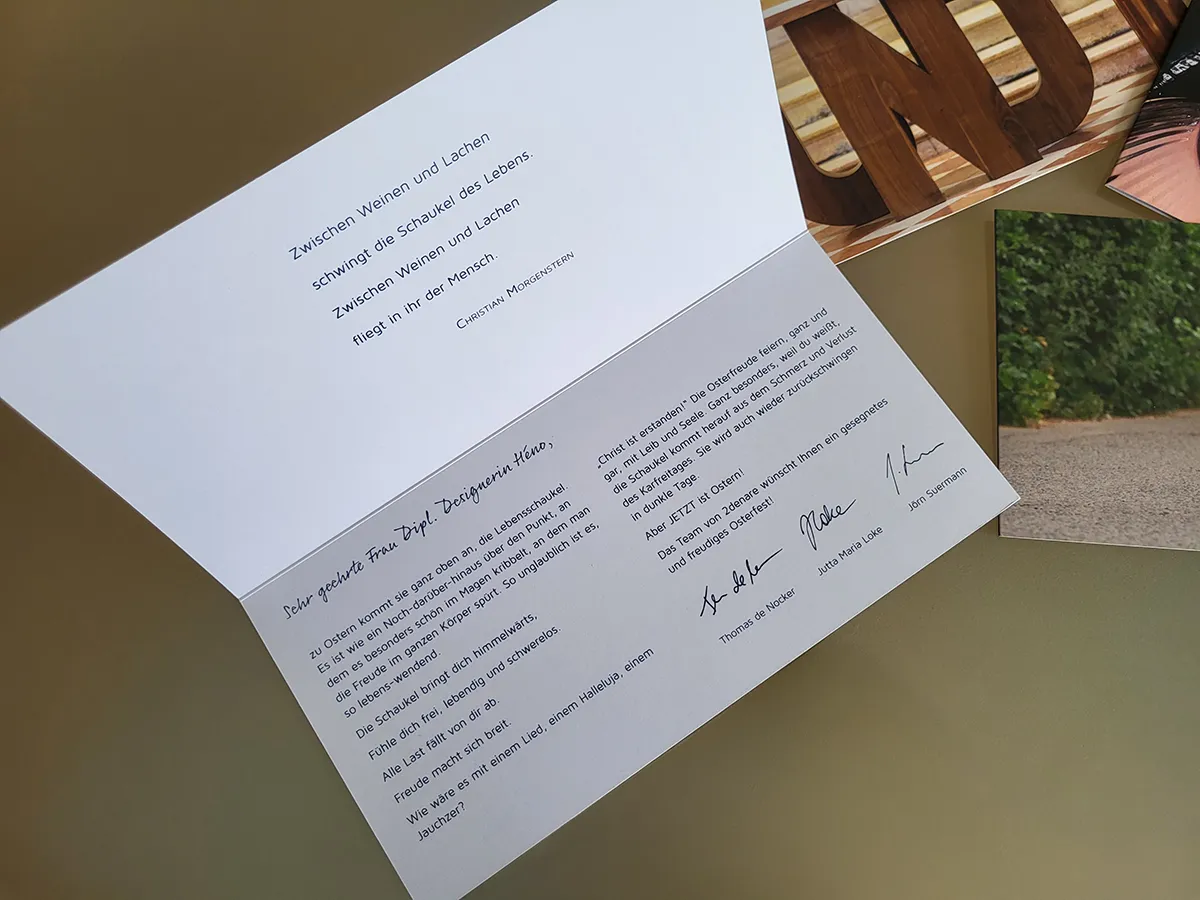 Zwischen Weinen und Lachen
schwingt die Schaukel des Lebens.
Zwischen Weinen und Lachen
fliegt in ihr der Mensch.
Christian Morgenstern
Sehr geehrte Frau Dipl. Designerin Héno,
zu Ostern kommt sie ganz oben an, die Lebensschaukel.
Es ist wie ein Noch-darüber-hinaus über den Punkt, an
dem es besonders schön im Magen kribbelt, an dem man
die Freude im ganzen Körper spürt. So unglaublich ist es,
so lebens-wendend.
Die Schaukel bringt dich himmelwärts,
Fühle dich frei, lebendig und schwerelos.
Alle Last fällt von dir ab.
Freude macht sich breit.
Wie wäre es mit einem Lied, einem Halleluja, einem
Jauchzer?
„Christ ist erstanden!“ Die Osterfreude feiern, ganz und
gar, mit Leib und Seele. Ganz besonders, weil du weißt,
die Schaukel kommt herauf aus dem Schmerz und Verlust
des Karfreitages. Sie wird auch wieder zurückschwingen
in dunkle Tage.
Aber JETZT ist Ostern!
Das Team von 2denare wünscht Ihnen ein gesegnetes
und freudiges Osterfest!
Thomas de Nocker
Jutta Maria Loke
Jörn Suermann